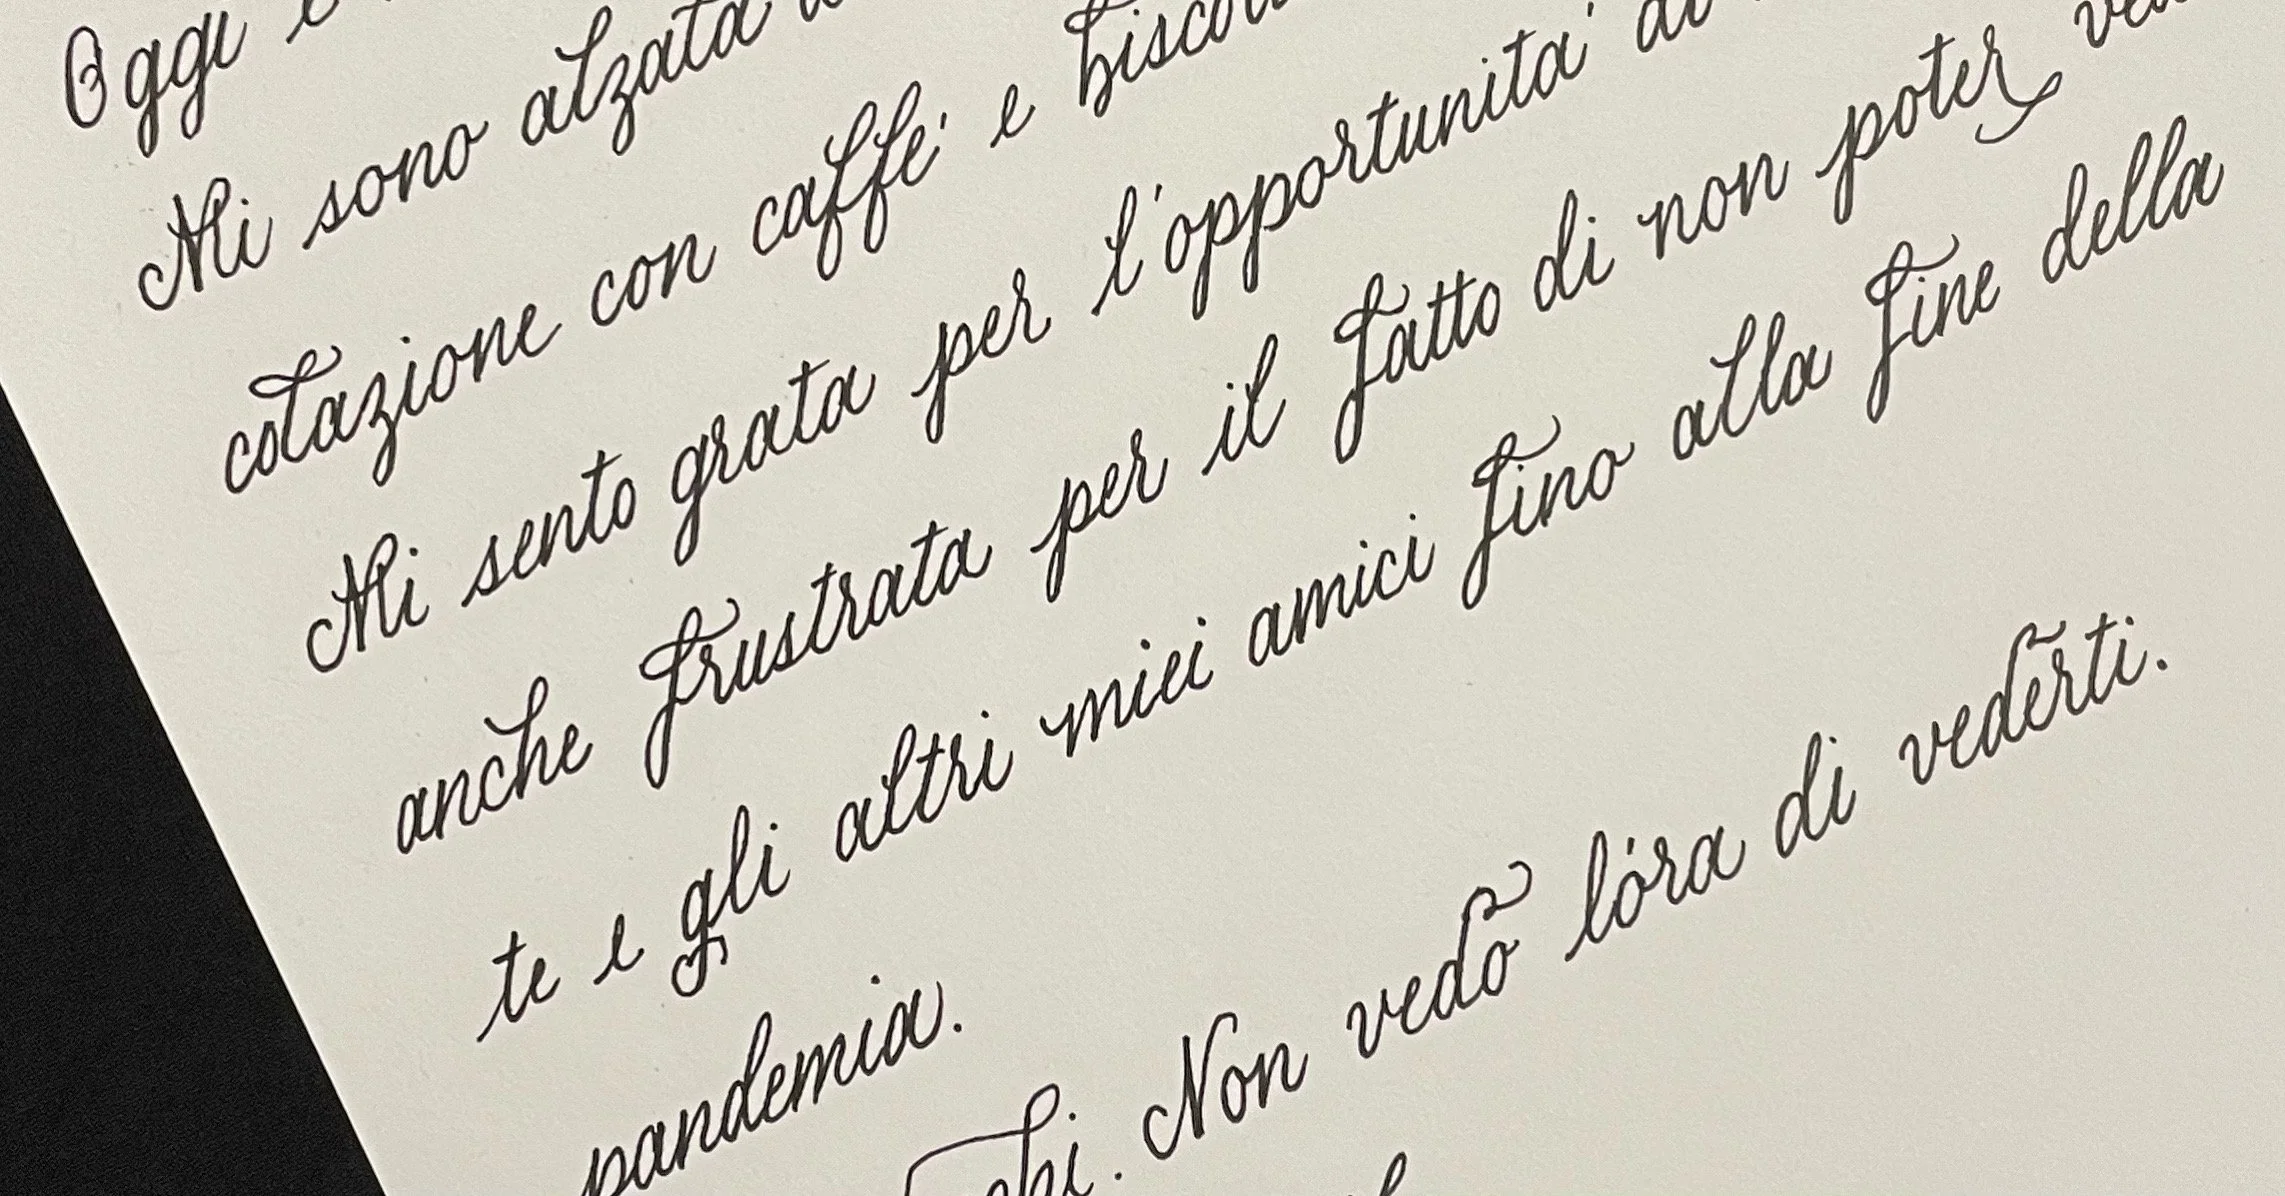 Oggi
Mi sono alzata
colazione con caffé e
Mi sento grata per l'opportunitá di
anche frustrata per il fatto di non poter
te e gli altri miei amici fino alla fine della
pandemia.
Non vedo l'ora di vederti.